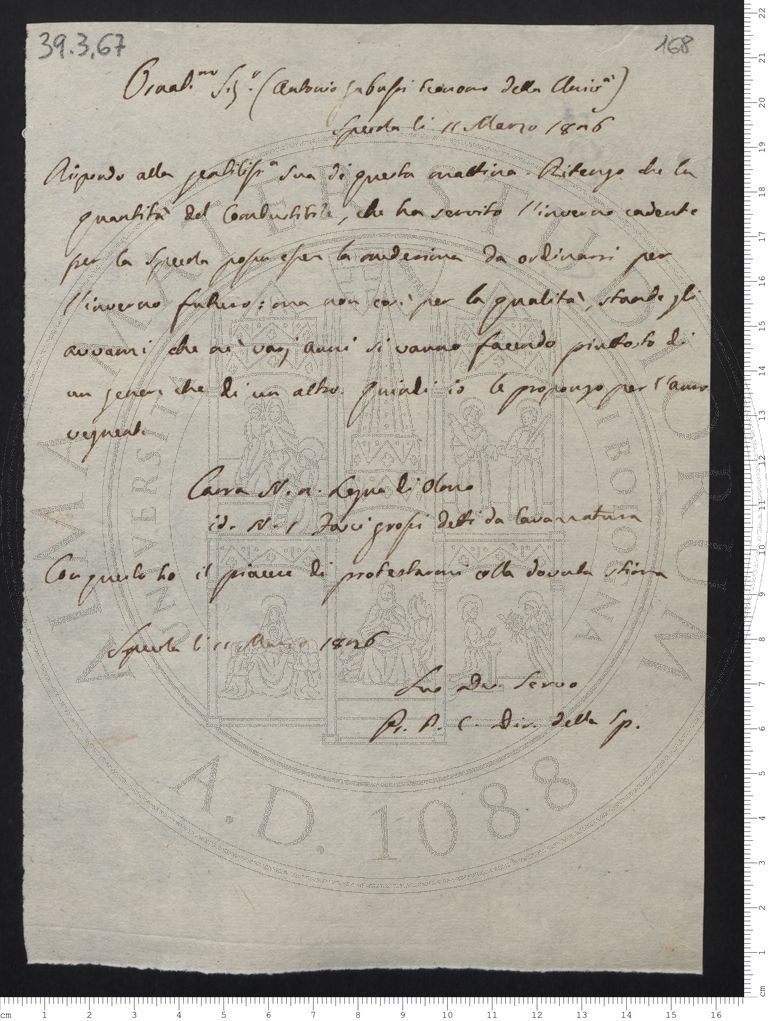 39.3.67
168
Ornat.mo Sig.r (Antonio Gabussi Economo della Univ.à)
Specola li 11 Marzo 1826
Rispondo alla gentiliss.a sua di questa mattina. Ritengo che la
quantità del Combustibile, che ha servito l'inverno cadente
per la Specola possa esser la medesima da ordinarsi per
l'inverno futuro; ma non così per la qualità, stande gli
avvanzi che ne' varj anni si vanno facendo piuttosto di
un genere che di un altro. Quindi io le propongo per l'anno
vegnente
Carra N. Legna di Olmo
id. N. 1 Fasci grossi detti da Cavanatura
Con questo ho il piacere di protestarmi colla dovuta stima
Specola li 11 Marzo 1826
Suo Dev. Servo
P. C. Dir. della Sp.
ALMA MATER STUDIORUM
UNIVERSITÀ DI BOLOGNA
A.D. 1088
cm 1 2 3 4 5 6 7 8 9 10 11 12 13 14 15 16
22
21
20
19
18
17
16
15
14
13
12
11
10
9
8
7
6
5
4
3
2
1
cm